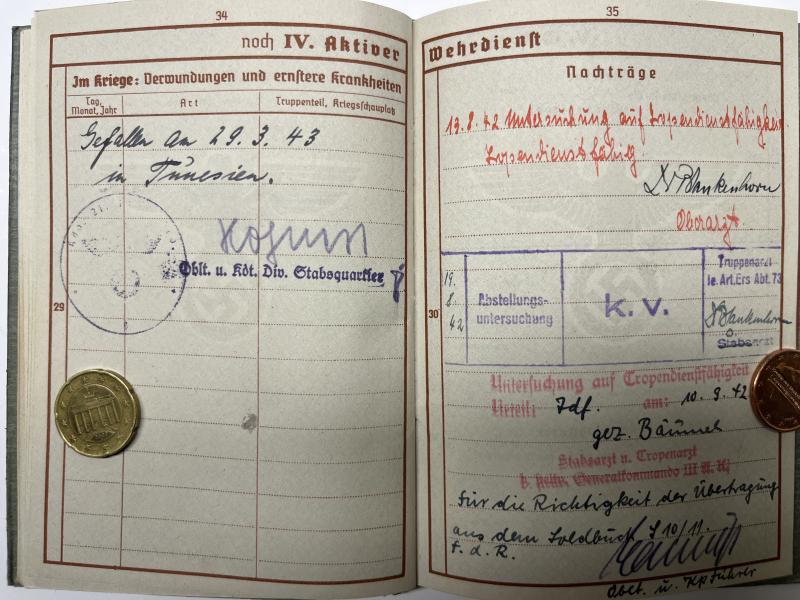 34
noch IV. Aktiver
Im Kriege: Verwundungen und ernstere Krankheiten
Tag, Monat, Jahr
Art
Truppenteil, Kriegsschauplatz
Gefallen am 29.3.43
in Tunesien.
Oblt. u. Kdt. Div. Stabsquartier
29
35
Wehrdienst
Nachträge
13.8.42 Untersuchung auf Tropendienstfähigkeit
Tropendienstfähig
Dr Blankenhorn
Oberarzt
19.
8.
42
Abstellungs-
untersuchung
k. v.
Truppenarzt
le. Art. Ers Abt. 73
Dr Blankenhorn
Stabsarzt
30
Untersuchung auf Tropendienstfähigkeit
Urteil: Tdf. am: 10.9.42
gez. Bäumel
Stabsarzt u. Tropenarzt
b. Generalkommando III A.K.
Für die Richtigkeit der Übertragung
aus dem Soldbuch S 10/11.
F. d. R.
Oblt. u. Kp Führer